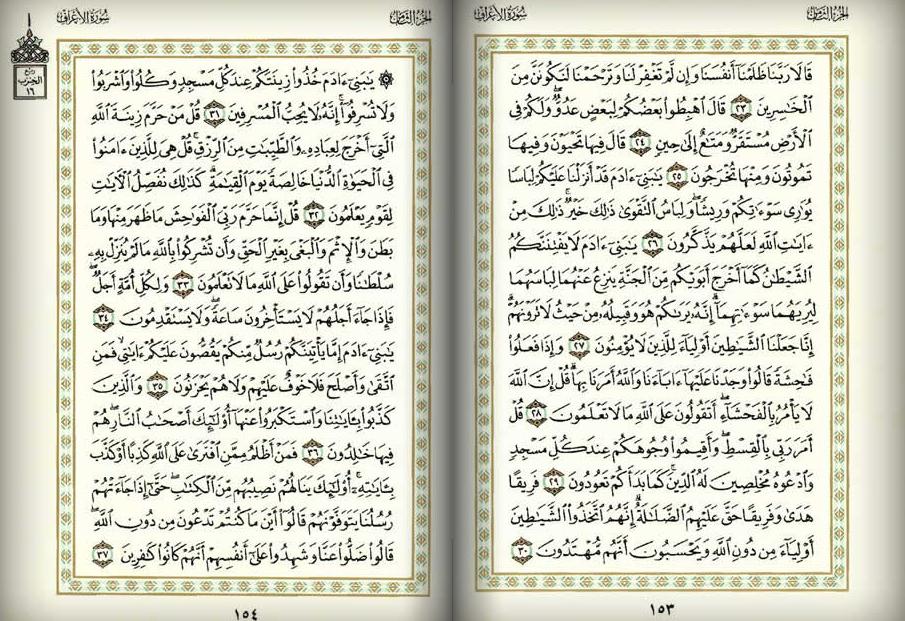 الجزء الثامن
سورة الأعراف
قَالَا رَبَّنَا ظَلَمْنَا أَنفُسَنَا وَإِن لَّمْ تَغْفِرْ لَنَا وَتَرْحَمْنَا لَنَكُونَنَّ مِنَ
الْخَاسِرِينَ ٢٣ قَالَ اهْبِطُوا بَعْضُكُمْ لِبَعْضٍ عَدُوٌّ وَلَكُمْ فِي
الْأَرْضِ مُسْتَقَرٌّ وَمَتَاعٌ إِلَىٰ حِينٍ ٢٤ قَالَ فِيهَا تَحْيَوْنَ وَفِيهَا
تَمُوتُونَ وَمِنْهَا تُخْرَجُونَ ٢٥ يَا بَنِي آدَمَ قَدْ أَنزَلْنَا عَلَيْكُمْ لِبَاسًا
يُوَارِي سَوْآتِكُمْ وَرِيشًا وَلِبَاسُ التَّقْوَىٰ ذَٰلِكَ خَيْرٌ ذَٰلِكَ مِنْ
آيَاتِ اللَّهِ لَعَلَّهُمْ يَذَّكَّرُونَ ٢٦ يَا بَنِي آدَمَ لَا يَفْتِنَنَّكُمُ
الشَّيْطَانُ كَمَا أَخْرَجَ أَبَوَيْكُم مِّنَ الْجَنَّةِ يَنزِعُ عَنْهُمَا لِبَاسَهُمَا
لِيُرِيَهُمَا سَوْآتِهِمَا إِنَّهُ يَرَاكُمْ هُوَ وَقَبِيلُهُ مِنْ حَيْثُ لَا تَرَوْنَهُمْ
إِنَّا جَعَلْنَا الشَّيَاطِينَ أَوْلِيَاءَ لِلَّذِينَ لَا يُؤْمِنُونَ ٢٧ وَإِذَا فَعَلُوا
فَاحِشَةً قَالُوا وَجَدْنَا عَلَيْهَا آبَاءَنَا وَاللَّهُ أَمَرَنَا بِهَا قُلْ إِنَّ اللَّهَ
لَا يَأْمُرُ بِالْفَحْشَاءِ أَتَقُولُونَ عَلَى اللَّهِ مَا لَا تَعْلَمُونَ ٢٨ قُلْ
أَمَرَ رَبِّي بِالْقِسْطِ وَأَقِيمُوا وُجُوهَكُمْ عِندَ كُلِّ مَسْجِدٍ
وَادْعُوهُ مُخْلِصِينَ لَهُ الدِّينَ كَمَا بَدَأَكُمْ تَعُودُونَ ٢٩ فَرِيقًا
هَدَىٰ وَفَرِيقًا حَقَّ عَلَيْهِمُ الضَّلَالَةُ إِنَّهُمُ اتَّخَذُوا الشَّيَاطِينَ
أَوْلِيَاءَ مِن دُونِ اللَّهِ وَيَحْسَبُونَ أَنَّهُم مُّهْتَدُونَ ٣٠
١٥٣
الجزء الثامن
سورة الأعراف
ربع
الحزب
١٦
۞ يَا بَنِي آدَمَ خُذُوا زِينَتَكُمْ عِندَ كُلِّ مَسْجِدٍ وَكُلُوا وَاشْرَبُوا
وَلَا تُسْرِفُوا إِنَّهُ لَا يُحِبُّ الْمُسْرِفِينَ ٣١ قُلْ مَنْ حَرَّمَ زِينَةَ اللَّهِ
الَّتِي أَخْرَجَ لِعِبَادِهِ وَالطَّيِّبَاتِ مِنَ الرِّزْقِ قُلْ هِيَ لِلَّذِينَ آمَنُوا
فِي الْحَيَاةِ الدُّنْيَا خَالِصَةً يَوْمَ الْقِيَامَةِ كَذَٰلِكَ نُفَصِّلُ الْآيَاتِ
لِقَوْمٍ يَعْلَمُونَ ٣٢ قُلْ إِنَّمَا حَرَّمَ رَبِّيَ الْفَوَاحِشَ مَا ظَهَرَ مِنْهَا وَمَا
بَطَنَ وَالْإِثْمَ وَالْبَغْيَ بِغَيْرِ الْحَقِّ وَأَن تُشْرِكُوا بِاللَّهِ مَا لَمْ يُنَزِّلْ بِهِ
سُلْطَانًا وَأَن تَقُولُوا عَلَى اللَّهِ مَا لَا تَعْلَمُونَ ٣٣ وَلِكُلِّ أُمَّةٍ أَجَلٌ
فَإِذَا جَاءَ أَجَلُهُمْ لَا يَسْتَأْخِرُونَ سَاعَةً وَلَا يَسْتَقْدِمُونَ ٣٤
يَا بَنِي آدَمَ إِمَّا يَأْتِيَنَّكُمْ رُسُلٌ مِّنكُمْ يَقُصُّونَ عَلَيْكُمْ آيَاتِي فَمَنِ
اتَّقَىٰ وَأَصْلَحَ فَلَا خَوْفٌ عَلَيْهِمْ وَلَا هُمْ يَحْزَنُونَ ٣٥ وَالَّذِينَ
كَذَّبُوا بِآيَاتِنَا وَاسْتَكْبَرُوا عَنْهَا أُولَٰئِكَ أَصْحَابُ النَّارِ هُمْ
فِيهَا خَالِدُونَ ٣٦ فَمَنْ أَظْلَمُ مِمَّنِ افْتَرَىٰ عَلَى اللَّهِ كَذِبًا أَوْ كَذَّبَ
بِآيَاتِهِ أُولَٰئِكَ يَنَالُهُمْ نَصِيبُهُم مِّنَ الْكِتَابِ حَتَّىٰ إِذَا جَاءَتْهُمْ
رُسُلُنَا يَتَوَفَّوْنَهُمْ قَالُوا أَيْنَ مَا كُنتُمْ تَدْعُونَ مِن دُونِ اللَّهِ
قَالُوا ضَلُّوا عَنَّا وَشَهِدُوا عَلَىٰ أَنفُسِهِمْ أَنَّهُمْ كَانُوا كَافِرِينَ ٣٧
١٥٤